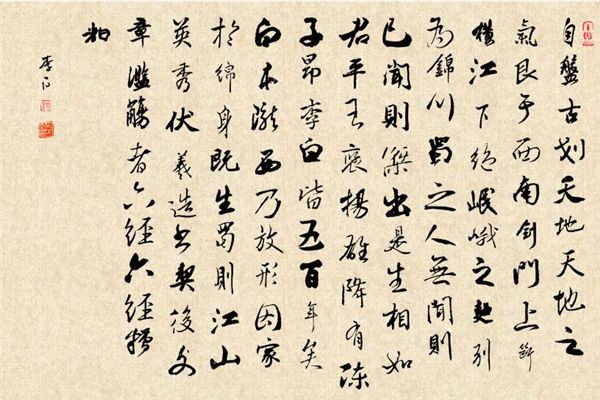 自盤古划天地天地之
氣艮于西南剑門上斷
横江下绝岷峨之曲别
為錦川蜀之人無聞則
已聞則傑出是生相如
君平王褒揚雄降有陈
子昂李白皆五百年矣
白本隴西乃放形因家
於綿身既生蜀則江山
英秀伏羲造书契後文
章濫觴者六經六經糟
粕